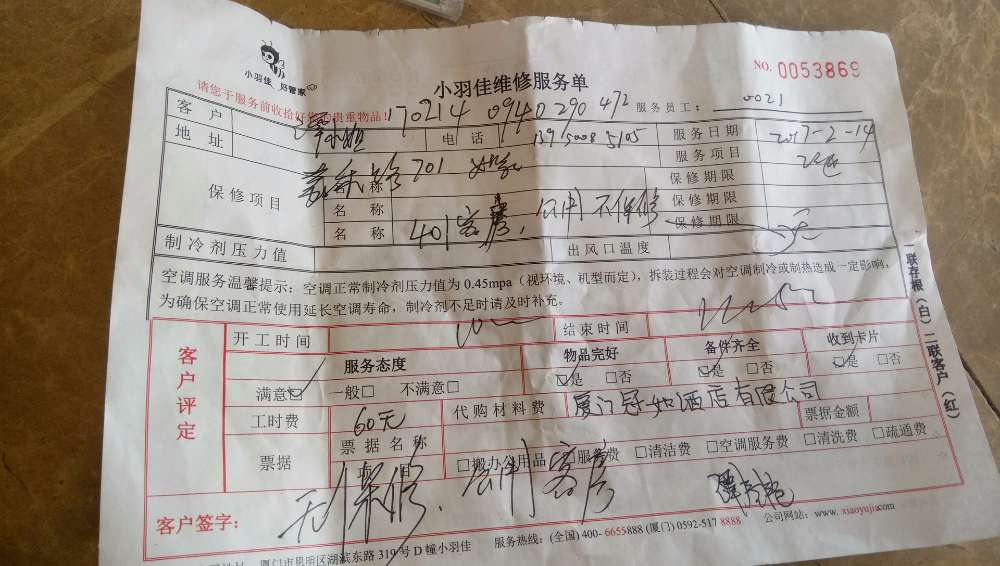 小羽佳 好管家
小羽佳维修服务单
NO. 0053869
请您于服务前收拾好您的贵重物品!
170214 0940290 472
服务员工: 0021
客户 谭小姐 电话 服务日期 2017-2-14
地址 服务项目
保修项目 名称 701 保修期限
名称 保修期限
名称 401客房, 不保修 保修期限 无
制冷剂压力值 出风口温度
空调服务温馨提示:空调正常制冷剂压力值为 0.45mpa(视环境、机型而定),拆装过程会对空调制冷或制热造成一定影响,
为确保空调正常使用延长空调寿命,制冷剂不足时请及时补充。
一联存根(白)二联客户(红)
客户评定
开工时间 结束时间
服务态度 物品完好 备件齐全 收到卡片
满意☑ 一般□ 不满意□ ☑是 □否 ☑是 □否 ☑是 □否
工时费 60元 代购材料费 票据金额
厦门冠如酒店有限公司
票据 票据名称
项目 □搬办公用品 □服务费 □清洁费 □空调服务费 □清洗费 □疏通费
客户签字: 无保修, 客房
厦门市思明区湖滨东路 319 号 D 幢小羽佳 服务热线:(全国) 400- 6655888 (厦门) 0592-517 8888 公司网站:www. xiaoyujia.com